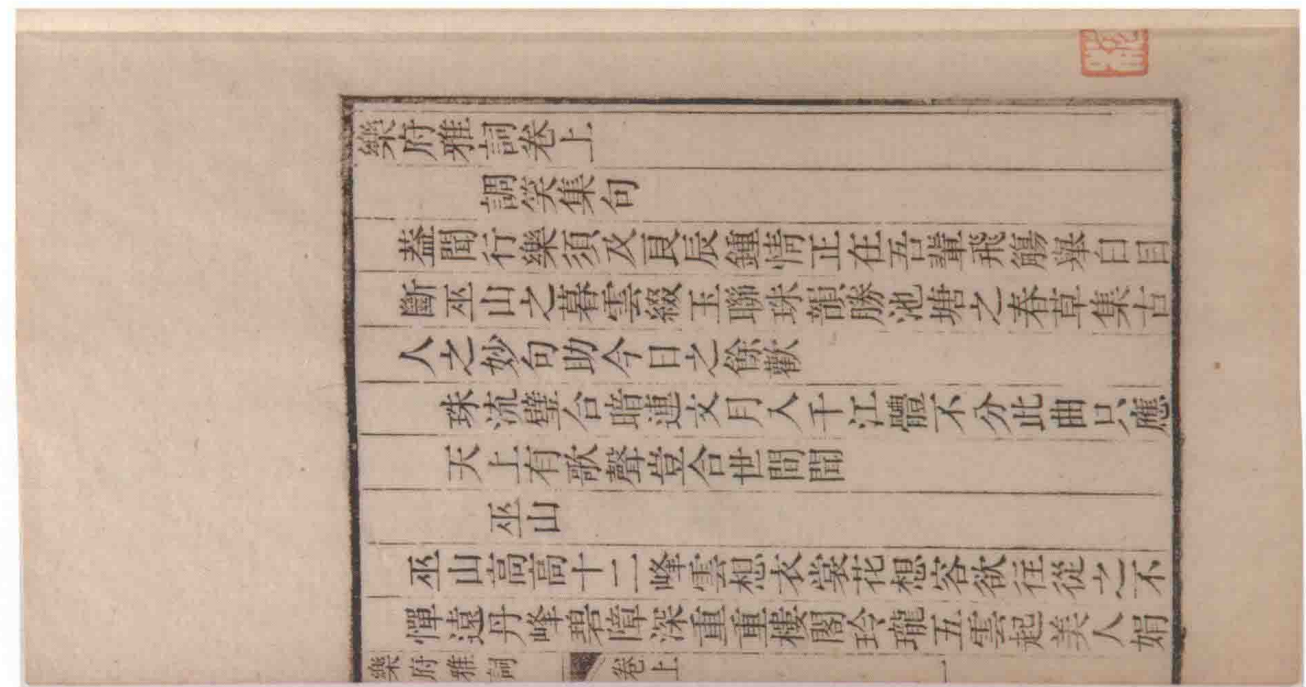 樂府雅詞卷上
調笑集句
葢聞行樂須及良辰鍾情正在吾輩飛觴舉白目
斷巫山之暮雲綴玉聯珠韻勝池塘之春草集古
人之妙句助今日之餘歡
珠流璧合暗連文月入千江體不分此曲只應
天上有歌聲豈合世間聞
巫山
巫山高高十二峰雲想衣裳花想容欲往從之不
憚遠丹峰碧障深重重樓閣玲瓏五雲起美人娟
樂府雅詞 卷上 一